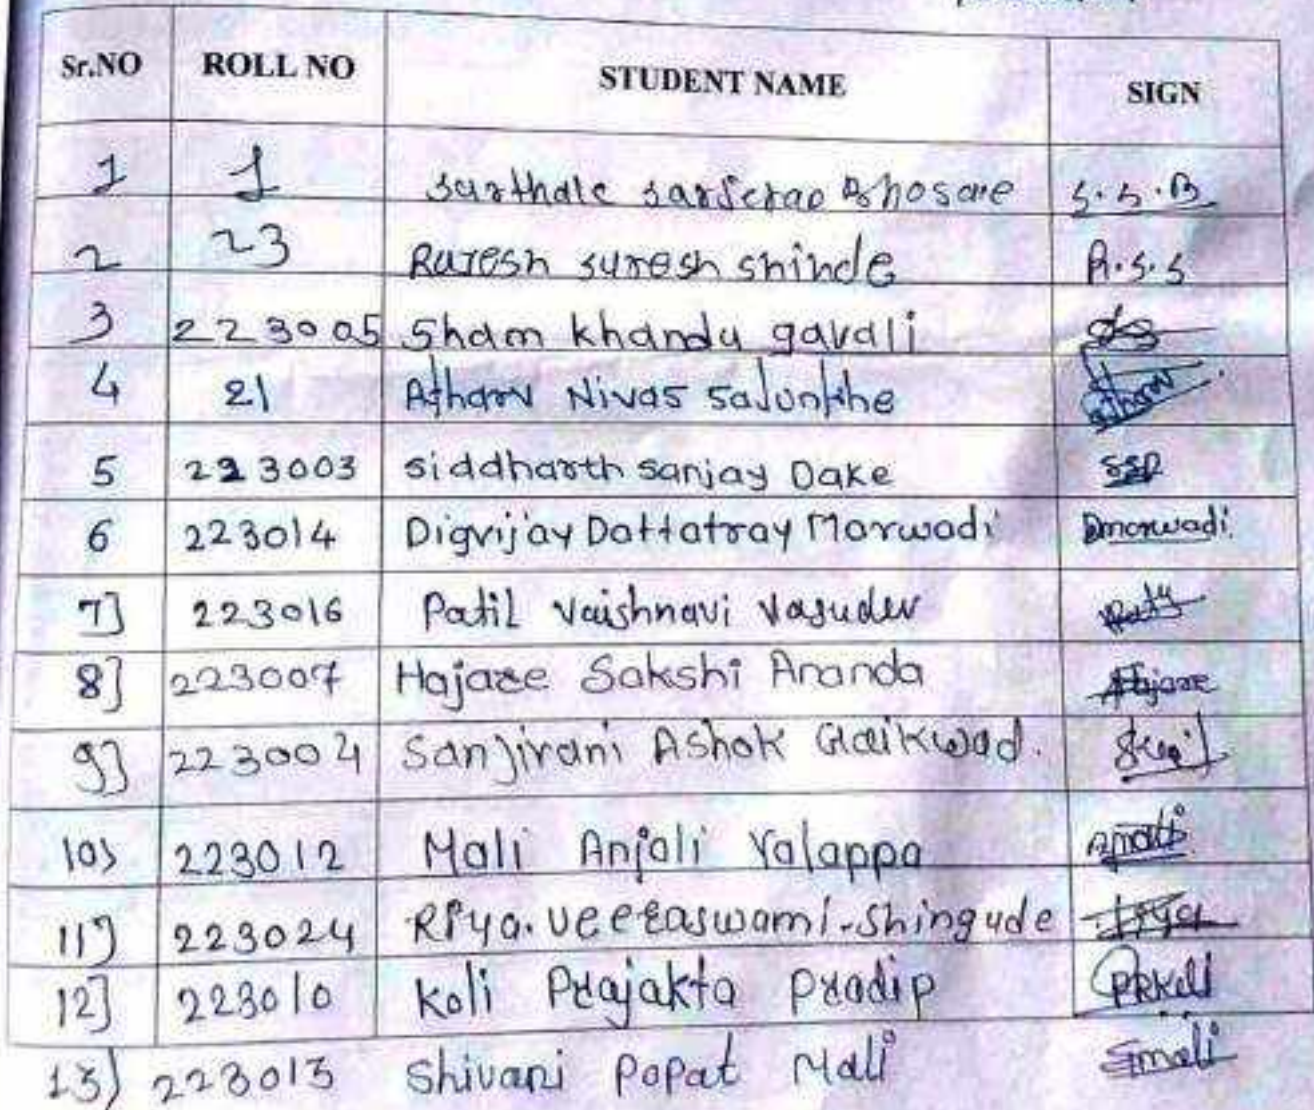 Sr.NO ROLL NO STUDENT NAME SIGN
1 1 Sarthale sarjerao Bhosale S.S.B
2 23 Ruresh suresh shinde R.S.S
3 223005 Sham khandu gavali
4 21 Atharv Nivas Salunkhe Atharv
5 223003 siddharth sanjay Dake SSD
6 223014 Digvijay Dattatray Marwadi Dmarwadi.
7] 223016 Patil Vaishnavi Vasudev
8] 223007 Hajare Sakshi Ananda Hajare
9] 223004 Sanjirani Ashok Gaikwad.
10) 223012 Mali Anjali Yalappa Amali
11) 223024 Riya. Veeraswami-Shingude
12] 223010 Koli Prajakta Pradip PRKoli
13) 223013 Shivani Popat Mali Smali